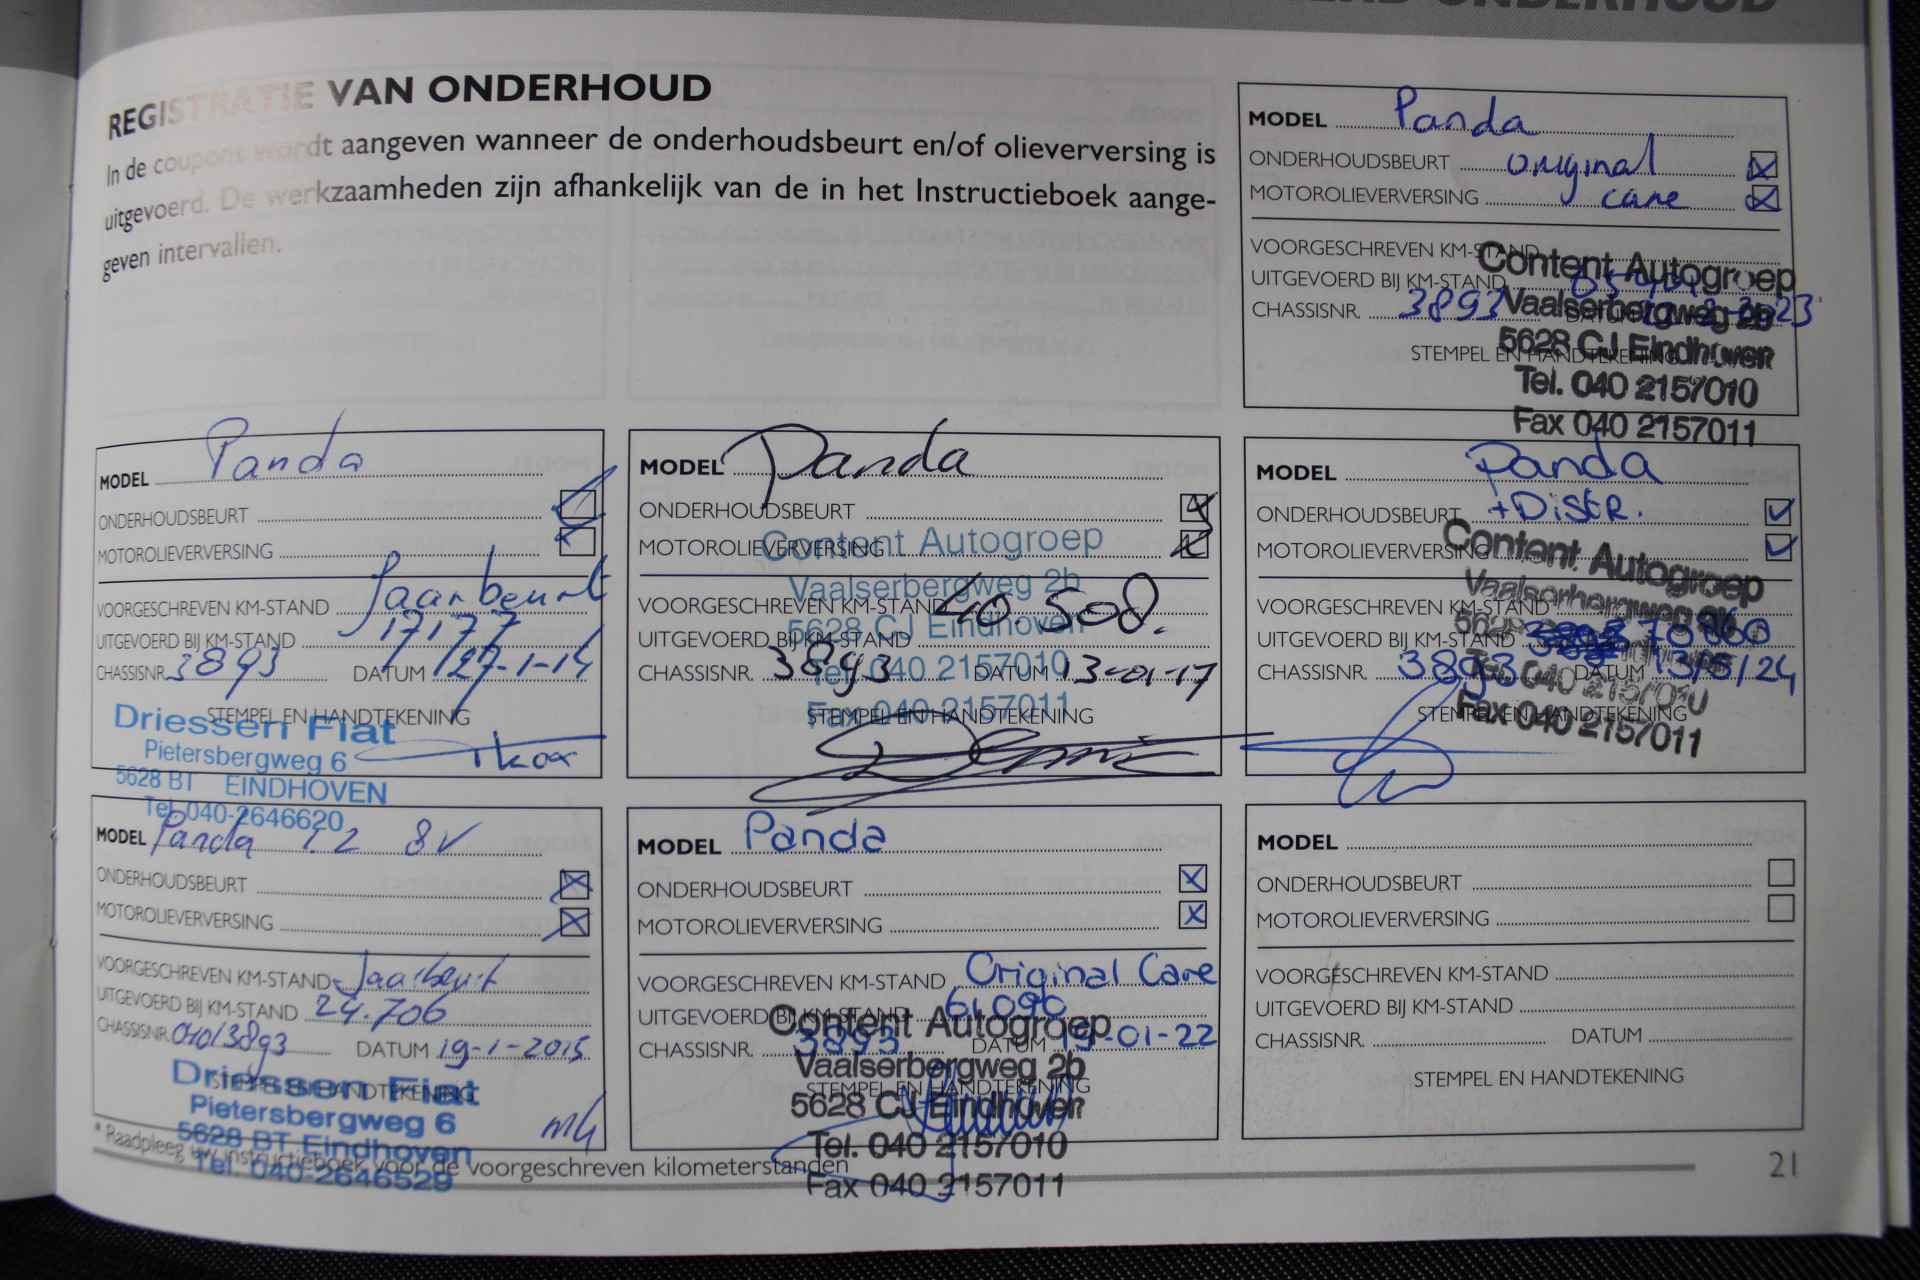 REGISTRATIE VAN ONDERHOUD
In de coupons wordt aangeven wanneer de onderhoudsbeurt en/of olieverversing is
uitgevoerd. De werkzaamheden zijn afhankelijk van de in het Instructieboek aange-
geven intervallen.
MODEL Panda
ONDERHOUDSBEURT original
MOTOROLIEVERVERSING care
VOORGESCHREVEN KM-STAND
UITGEVOERD BIJ KM-STAND
CHASSISNR. 3893 DATUM
STEMPEL EN HANDTEKENING
Content Autogroep
Vaalserbergweg 2b
5628 CJ Eindhoven
Tel. 040 2157010
Fax 040 2157011
MODEL Panda
ONDERHOUDSBEURT
MOTOROLIEVERVERSING
VOORGESCHREVEN KM-STAND Jaarbeurt
UITGEVOERD BIJ KM-STAND 17177
CHASSISNR. 3893 DATUM
STEMPEL EN HANDTEKENING
Driessen Fiat
Pietersbergweg 6
5628 BT EINDHOVEN
Tel. 040-2646620
MODEL Panda
ONDERHOUDSBEURT
MOTOROLIEVERVERSING
VOORGESCHREVEN KM-STAND 40.508.
UITGEVOERD BIJ KM-STAND
CHASSISNR. 3893 DATUM 13-01-17
STEMPEL EN HANDTEKENING
Content Autogroep
Vaalserbergweg 2b
5628 CJ Eindhoven
Tel. 040 2157010
Fax 040 2157011
MODEL Panda
ONDERHOUDSBEURT + Distr.
MOTOROLIEVERVERSING
VOORGESCHREVEN KM-STAND
UITGEVOERD BIJ KM-STAND
CHASSISNR. 3893 DATUM 13/5/24
STEMPEL EN HANDTEKENING
Content Autogroep
Vaalserbergweg
Tel. 040 2157010
Fax 040 2157011
MODEL Panda 1.2 8V
ONDERHOUDSBEURT
MOTOROLIEVERVERSING
VOORGESCHREVEN KM-STAND Jaarbeurt
UITGEVOERD BIJ KM-STAND 24.706
CHASSISNR. DATUM 19-1-2015
STEMPEL EN HANDTEKENING
Driessen Fiat
Pietersbergweg 6
5628 BT Eindhoven
Tel. 040-2646529
MODEL Panda
ONDERHOUDSBEURT
MOTOROLIEVERVERSING
VOORGESCHREVEN KM-STAND Original Care
UITGEVOERD BIJ KM-STAND 61096
CHASSISNR. 3893 DATUM
STEMPEL EN HANDTEKENING
Content Autogroep
Vaalserbergweg 2b
5628 CJ Eindhoven
Tel. 040 2157010
Fax 040 2157011
MODEL
ONDERHOUDSBEURT
MOTOROLIEVERVERSING
VOORGESCHREVEN KM-STAND
UITGEVOERD BIJ KM-STAND
CHASSISNR. DATUM
STEMPEL EN HANDTEKENING
* Raadpleeg uw instructieboek voor de voorgeschreven kilometerstanden
21